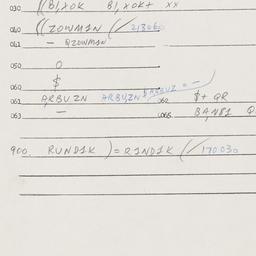 030 ((BI,XOK BI,XOK+ XX
040 ((ZOWMIN (/ 213060
041 — QZOWMIN
050 O
$
060
061 ARBUZN ARBUZN$ARBUZ = — 062 $+ QR
063 — 065 BANBI
900. RUNDIK ) = RINDIK (/ 170030